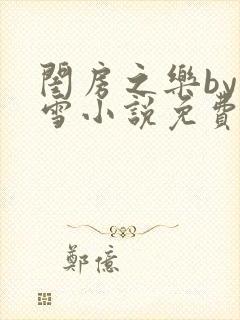 閨房之樂by
雪小說免費
鄭億